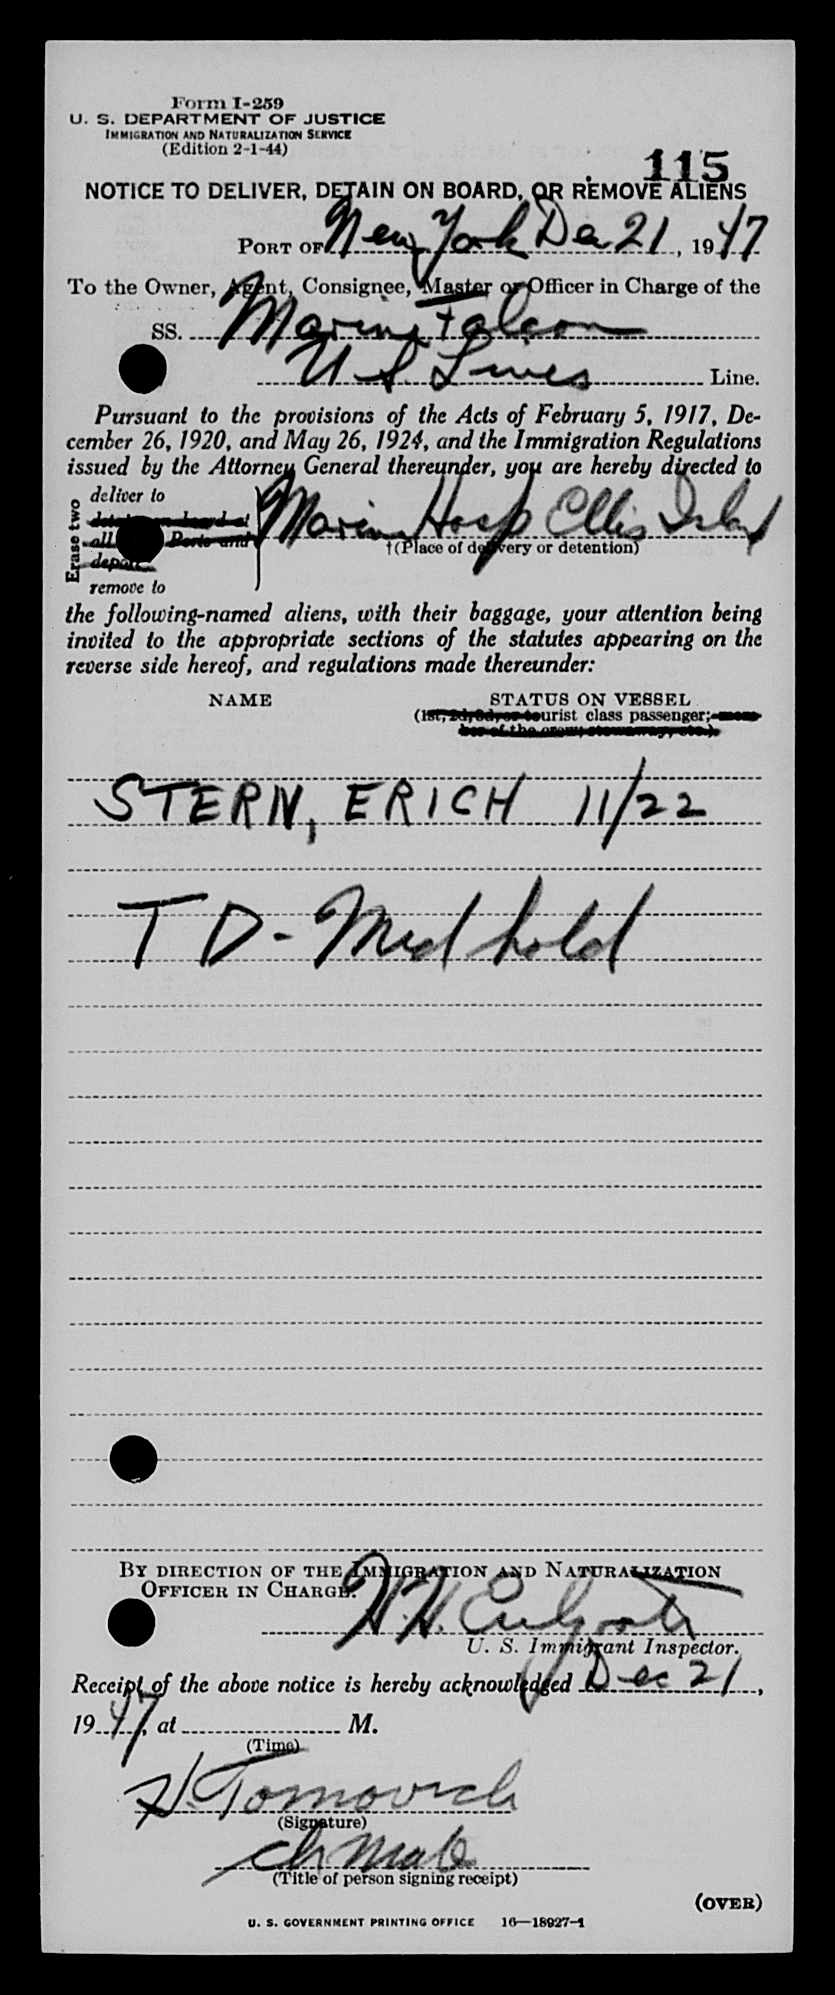 Form I-259
U. S. DEPARTMENT OF JUSTICE
IMMIGRATION AND NATURALIZATION SERVICE
(Edition 2-1-44)
115
NOTICE TO DELIVER, DETAIN ON BOARD, OR REMOVE ALIENS
PORT OF New York Dec 21, 1947
To the Owner, Agent, Consignee, Master or Officer in Charge of the
SS. Marine Falcon
U S Lines Line.
Pursuant to the provisions of the Acts of February 5, 1917, De-
cember 26, 1920, and May 26, 1924, and the Immigration Regulations
issued by the Attorney General thereunder, you are hereby directed to
Erase two
deliver to
detain on board at
all Ports and
deport
remove to
Marine Hosp Ellis Island
†(Place of delivery or detention)
the following-named aliens, with their baggage, your attention being
invited to the appropriate sections of the statutes appearing on the
reverse side hereof, and regulations made thereunder:
NAME STATUS ON VESSEL
(1st, 2d, 3d, or tourist class passenger; mem-
ber of the crew; stowaway, etc.)
STERN, ERICH 11/22
TD - Med hold
BY DIRECTION OF THE IMMIGRATION AND NATURALIZATION
OFFICER IN CHARGE.
H. H.
U. S. Immigrant Inspector.
Receipt of the above notice is hereby acknowledged Dec 21,
1947, at M.
(Time)
H. Tomovich
(Signature)
ch mate
(Title of person signing receipt)
(OVER)
U. S. GOVERNMENT PRINTING OFFICE 16—18927-1